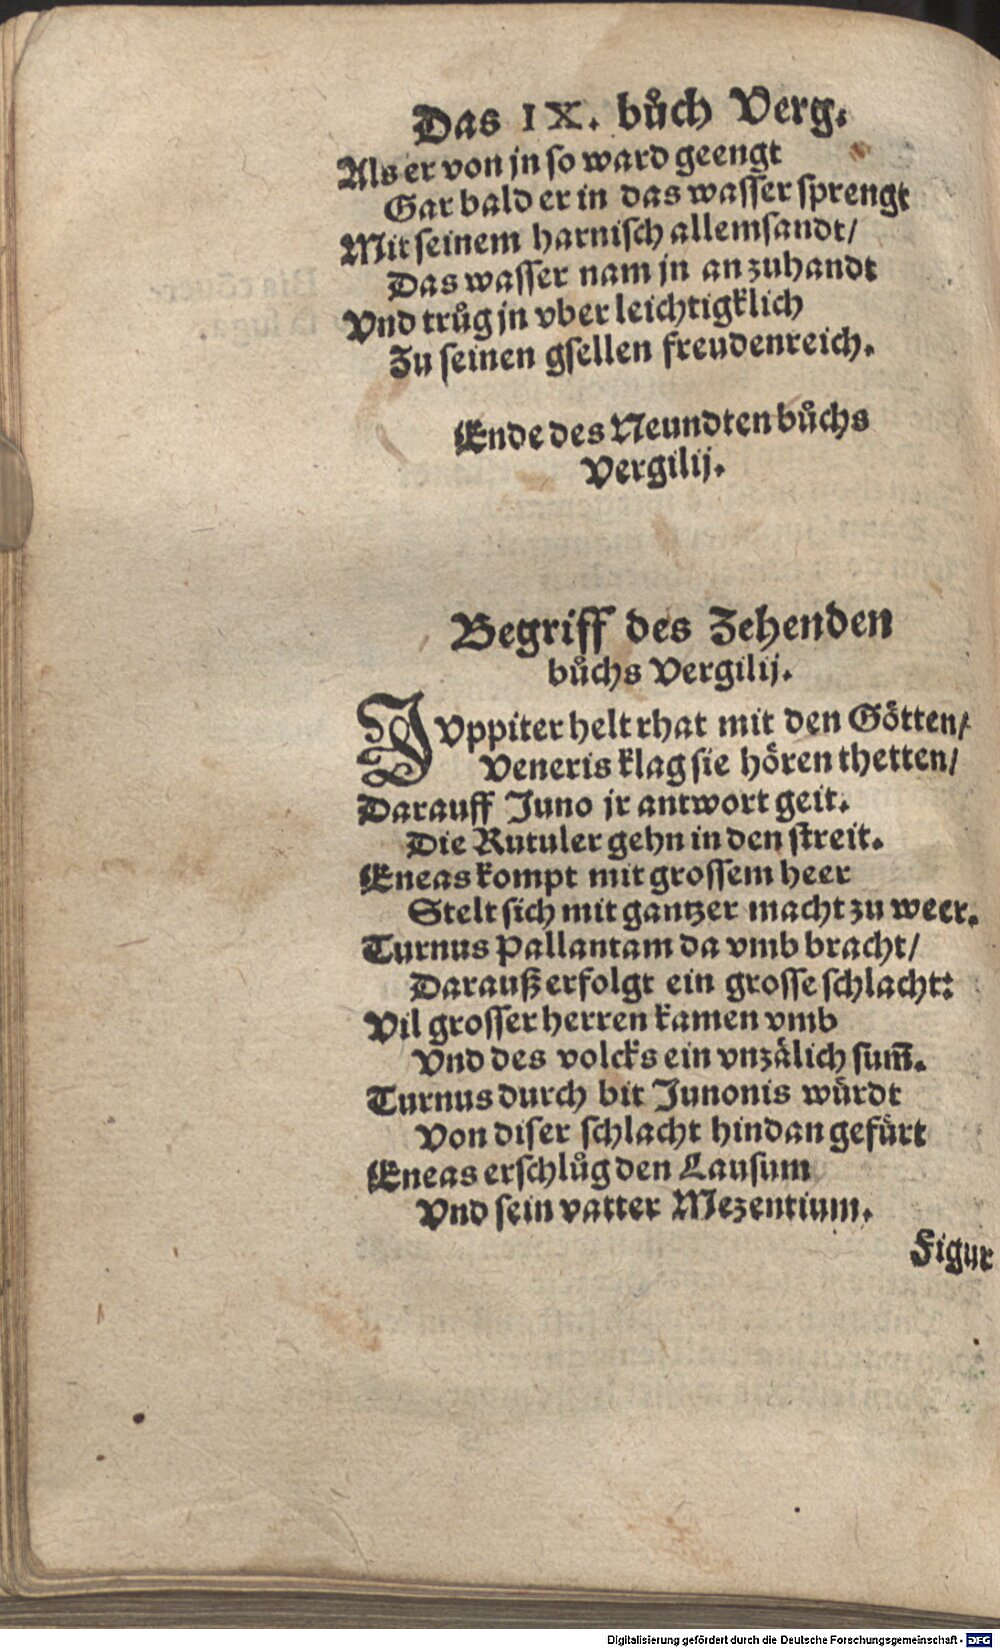 Das IX. bůch Verg.
Als er von jn so ward geengt
Gar bald er in das wasser sprengt
Mit seinem harnisch allemsandt/
Das wasser nam jn an zuhandt
Vnd trůg jn vber leichtigklich
Zu seinen gsellen freudenreich.
Ende des Neundten bůchs
Vergilij.
Begriff des Zehenden
bůchs Vergilij.
JVppiter helt rhat mit den Götten/
Veneris klag sie hören thetten/
Darauff Juno jr antwort geit.
Die Rutuler gehn in den streit.
Eneas kompt mit grossem heer
Stelt sich mit gantzer macht zu weer.
Turnus Pallantam da vmb bracht/
Darauß erfolgt ein grosse schlacht:
Vil grosser herren kamen vmb
Vnd des volcks ein vnzälich sum̃.
Turnus durch bit Junonis würdt
Von diser schlacht hindan gefürt
Eneas erschlůg den Lausum
Vnd sein vatter Mezentium.
Figur
Digitalisierung gefördert durch die Deutsche Forschungsgemeinschaft - DFG